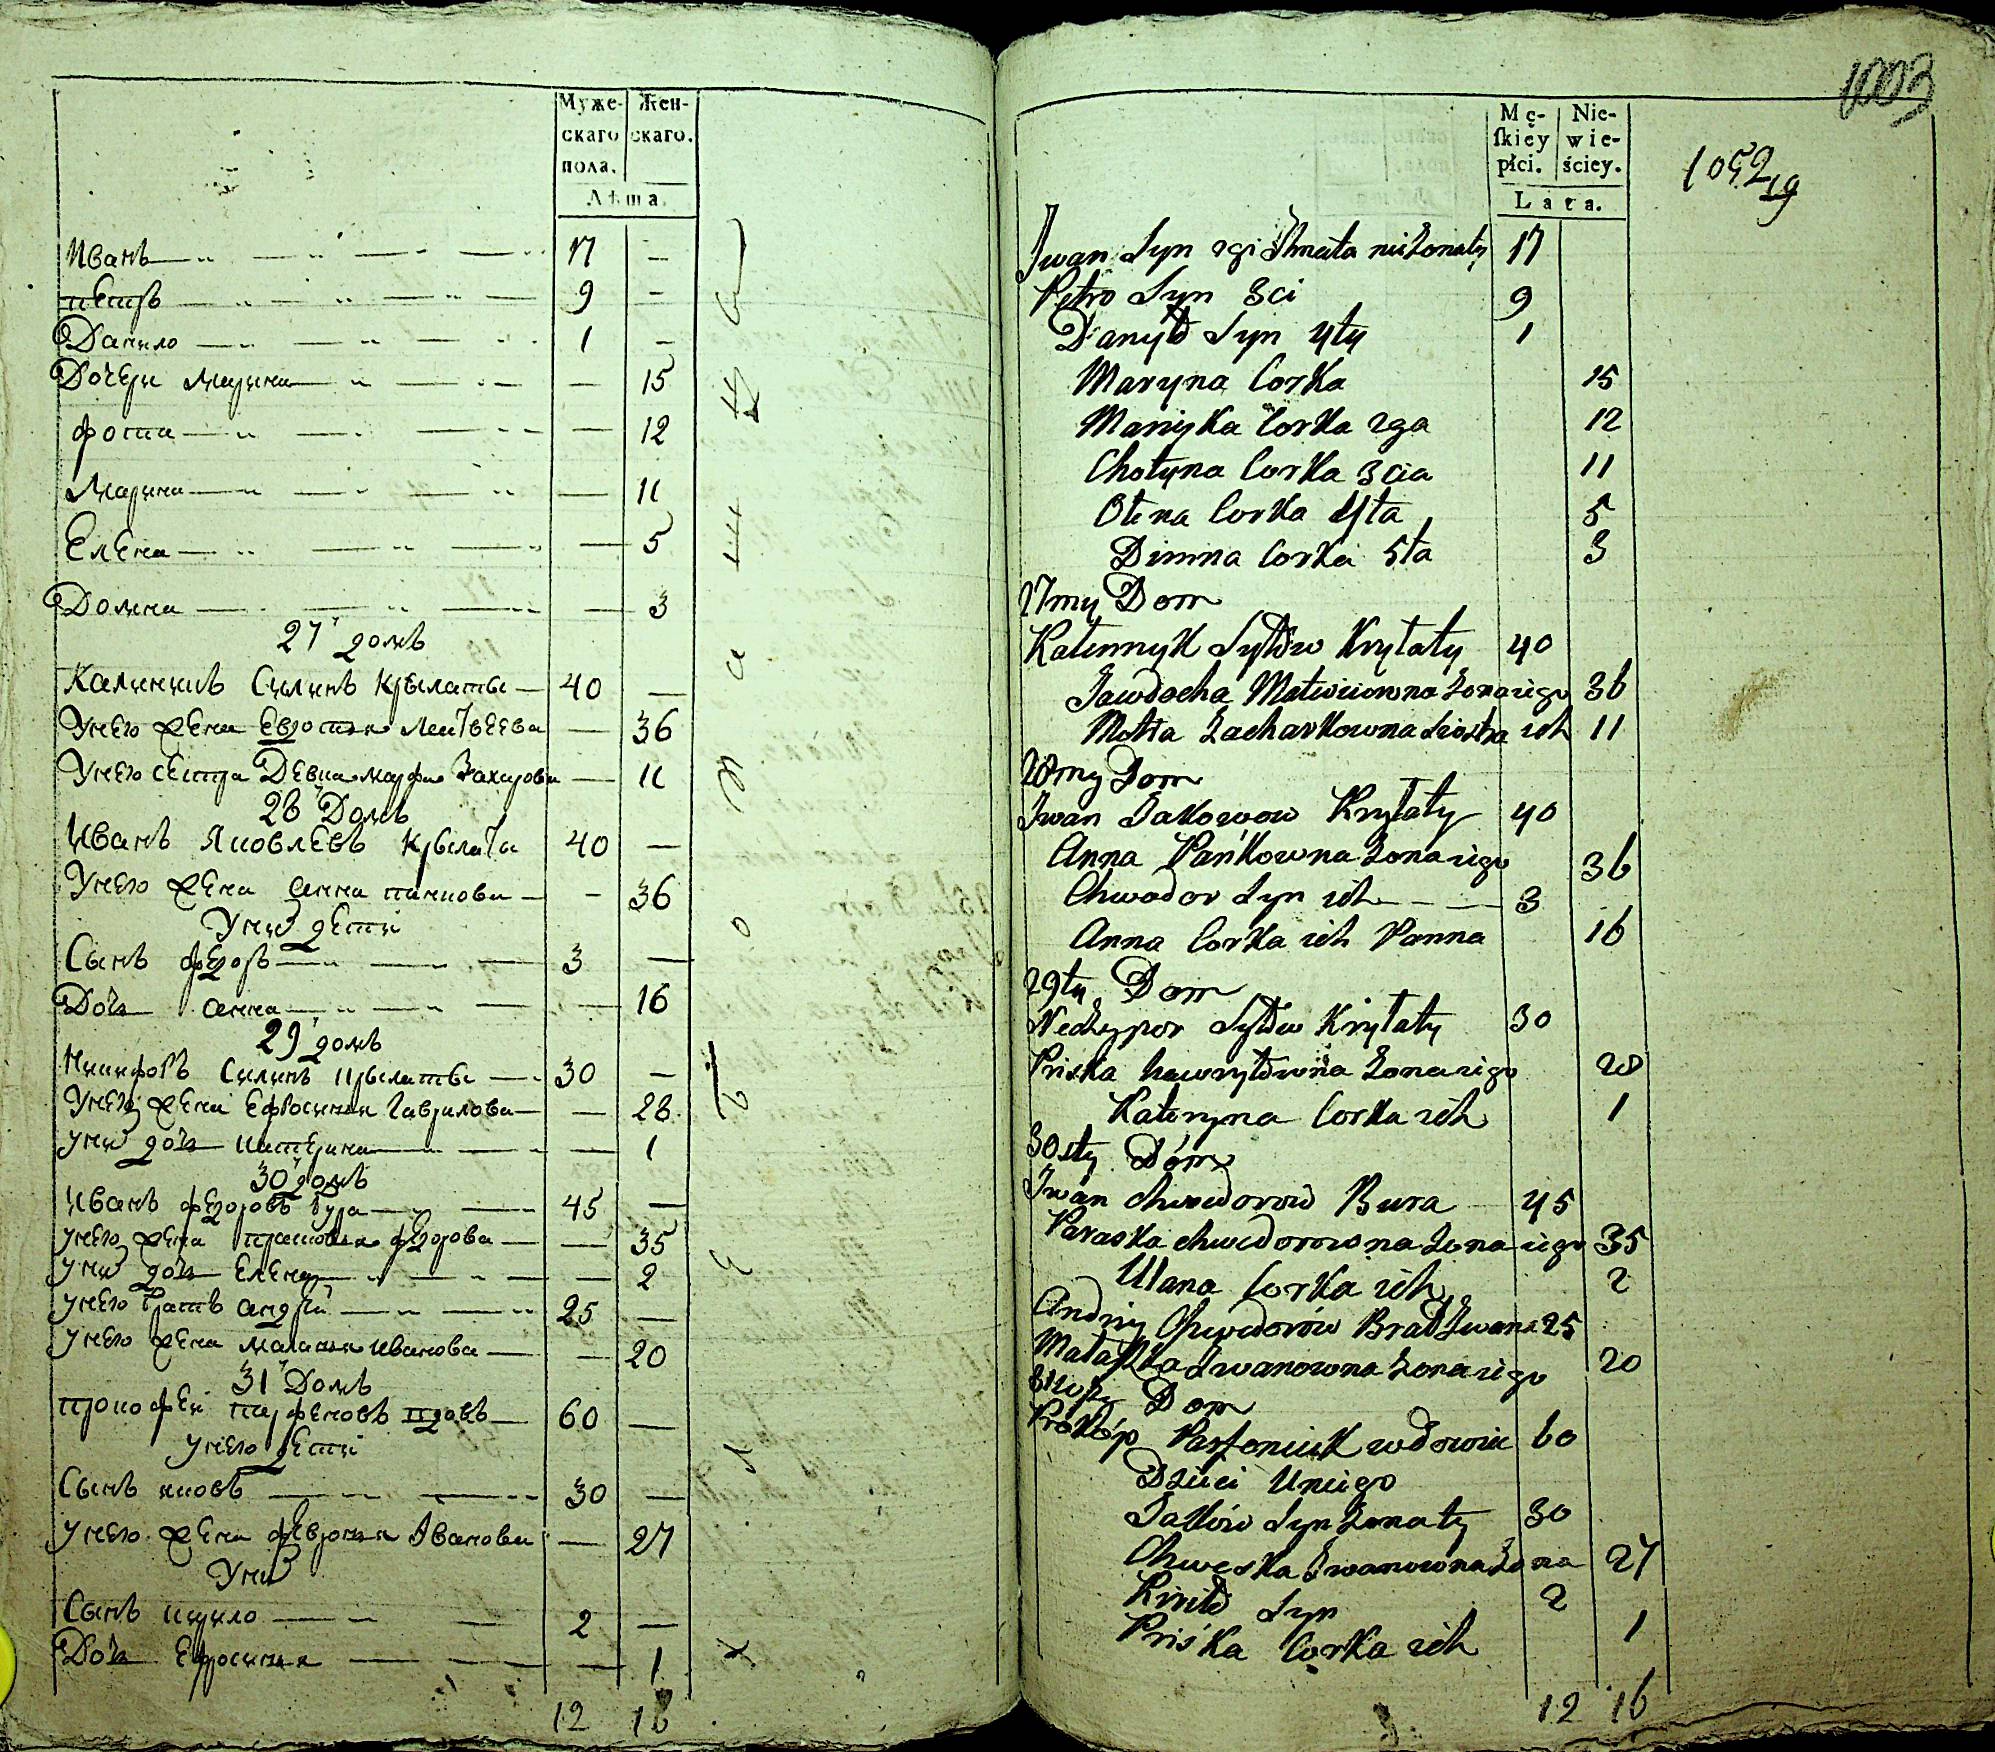 Муже-
скаго
пола.
Жен-
скаго.
Лѣта.
Иванъ 17 —
петръ 9 —
Данило 1 —
Дочери Марина — 15
фотіа — 12
Марина — 11
Елена — 5
Домна — 3
27 домъ
Калиникъ Силинъ Крылаты 40 —
Унего жена Евдотия Матвеева — 36
Унего сестра Девка марфа Захарова — 11
28 Домъ
Иванъ Яковлевъ Крылаты 40 —
Унего жена анна панкова — 36
Унихъ дети
Сынъ федоръ 3 —
Дочь анна — 16
29 домъ
Никифоръ Силинъ Крылаты 30 —
Унего жена Ефросиния Гаврилова — 28
Унихъ дочь катерина — 1
30 домъ
Иванъ федоровъ Бура 45 —
унего жена прасковья федорова — 35
Унихъ дочь Елена — 2
унего братъ андрей 25 —
унего жена маланья иванова — 20
31 Домъ
прокофей парфеновъ вдовъ 60 —
унего дети
Сынъ яковъ 30 —
унего жена февронья Иванова — 27
Унихъ
Сынъ кирило 2 —
Дочь Ефросиния — 1
12 16
1003
1052
Mę-
ſkiey
płci.
Nie-
wie-
ściey.
Lata.
Iwan Syn 2gi Ihnata nieżonaty 17
Petro Syn 3ci 9
Danyło Syn 4ty 1
Maryna Corka 15
Maryka Corka 2ga 12
Chotyna Corka 3cia 11
Ołena Corka 4ta 5
Dimna Corka 5ta 3
27my Dom
Kalennyk Syłów Kryłaty 40
Jawdocha Matwiiowna żona iego 36
Motra Zacharkowna Siostra ich 11
28my Dom
Iwan Jakowow Kryłaty 40
Anna Pańkowna żona iego 36
Chwedor Syn ich 3
Anna Corka ich Panna 16
29ty Dom
Neczypor Syłów Kryłaty 30
Priska hawryłowna żona iego 28
Kateryna Corka ich 1
30sty Dóm
Iwan chwedorow Bura 45
Paraska chwedorowna żona iego 35
Ulana Corka ich 2
Andriy Chwedorów Brat Iwana 25
Małaszka Iwanowna żona iego 20
31szy Dom
Prokóp Parfeniuk wdowiec 60
Dzieci Uniego
Jaków Syn żonaty 30
Chweska Iwanowna żona 27
Kiriło Syn 2
Priśka Corka ich 1
12 16